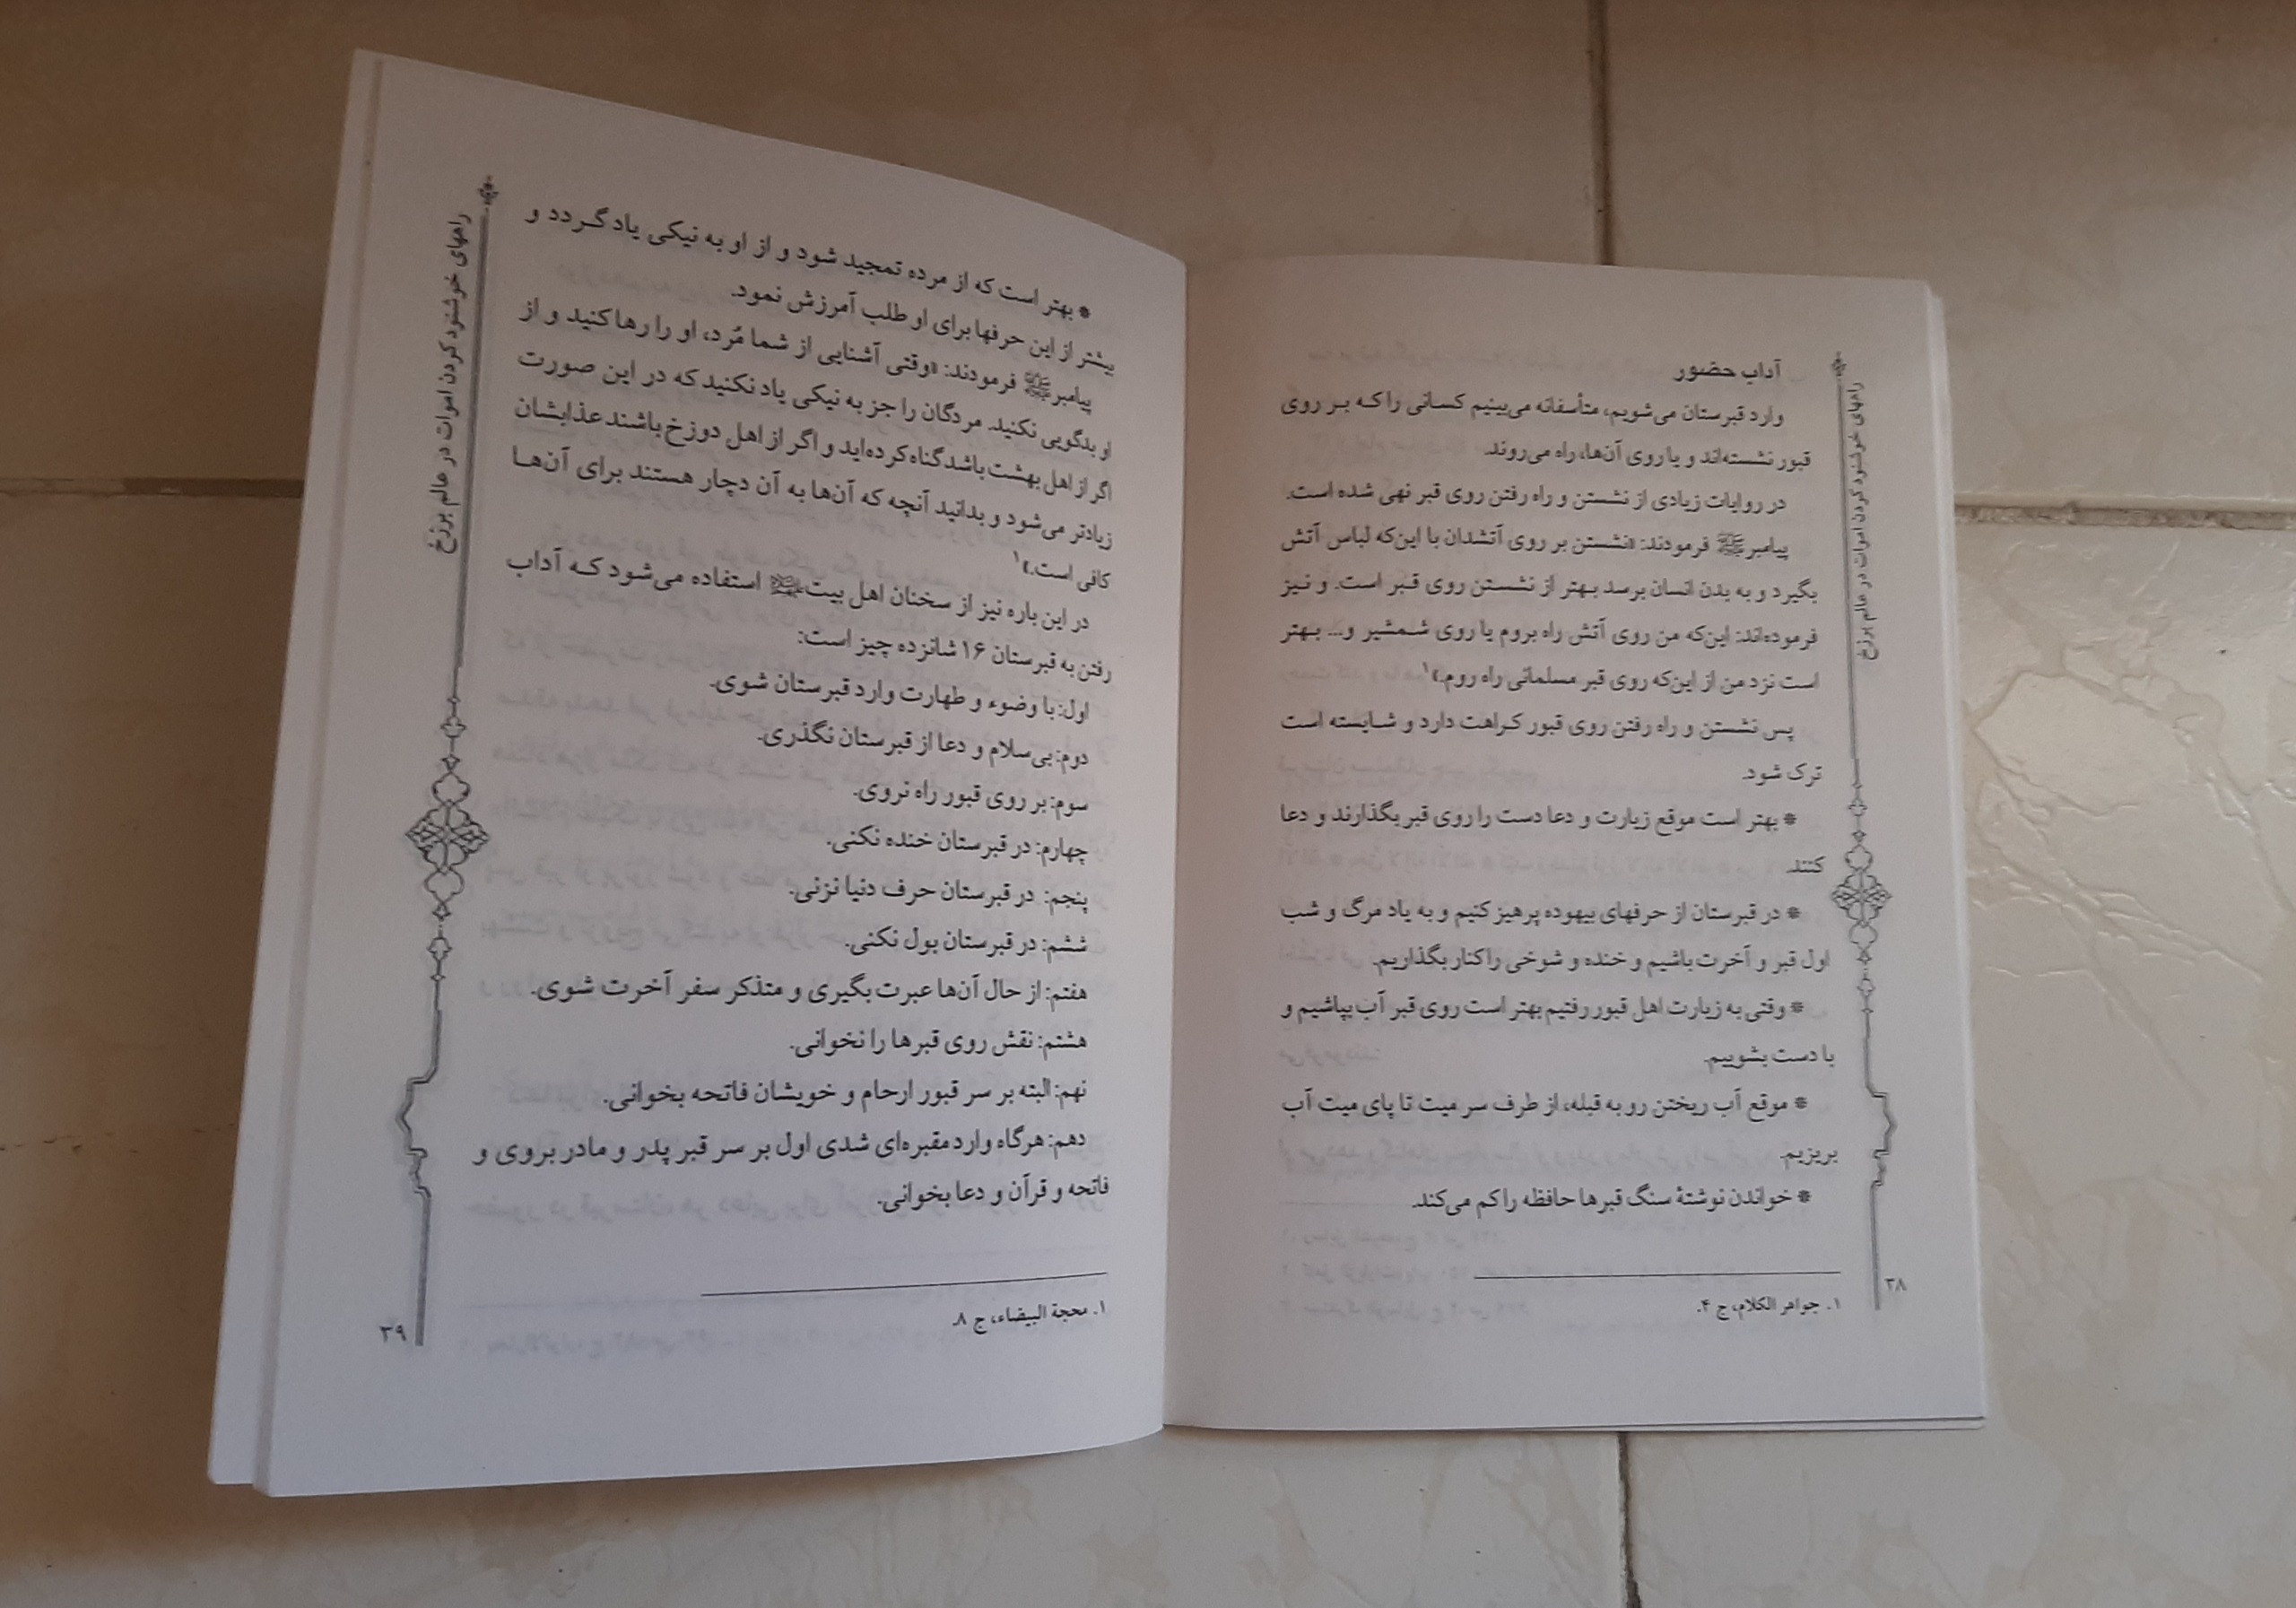 آداب حضور
وارد قبرستان می‌شویم، متأسفانه می‌بینیم کسانی را که بر روی
قبور نشسته‌اند و یا روی آن‌ها، راه می‌روند.
در روایات زیادی از نشستن و راه رفتن روی قبر نهی شده است.
پیامبرﷺ فرمودند: «نشستن بر روی آتشدان با این‌که لباس آتش
بگیرد و به بدن انسان برسد بهتر از نشستن روی قبر است. و نیز
فرموده‌اند: این‌که من روی آتش راه بروم یا روی شمشیر و... بهتر
است نزد من از این‌که روی قبر مسلمانی راه روم.»۱
پس نشستن و راه رفتن روی قبور کراهت دارد و شایسته است
ترک شود.
* بهتر است موقع زیارت و دعا دست را روی قبر بگذارند و دعا
کنند.
* در قبرستان از حرفهای بیهوده پرهیز کنیم و به یاد مرگ و شب
اول قبر و آخرت باشیم و خنده و شوخی را کنار بگذاریم.
* وقتی به زیارت اهل قبور رفتیم بهتر است روی قبر آب بپاشیم و
با دست بشوییم.
* موقع آب ریختن رو به قبله، از طرف سر میت تا پای میت آب
بریزیم.
* خواندن نوشتهٔ سنگ قبرها حافظه را کم می‌کند.
۱. جواهر الکلام، ج ۴.
راههای خوشنود کردن اموات در عالم برزخ
۳۸
* بهتر است که از مرده تمجید شود و از او به نیکی یاد گردد و
بیشتر از این حرفها برای او طلب آمرزش نمود.
پیامبرﷺ فرمودند: «وقتی آشنایی از شما مُرد، او را رها کنید و از
او بدگویی نکنید. مردگان را جز به نیکی یاد نکنید که در این صورت
اگر از اهل بهشت باشد گناه کرده‌اید و اگر از اهل دوزخ باشند عذابشان
زیادتر می‌شود و بدانید آنچه که آن‌ها به آن دچار هستند برای آن‌ها
کافی است.»۱
در این باره نیز از سخنان اهل بیت استفاده می‌شود که آداب
رفتن به قبرستان ۱۶ شانزده چیز است:
اول: با وضوء و طهارت وارد قبرستان شوی.
دوم: بی‌سلام و دعا از قبرستان نگذری.
سوم: بر روی قبور راه نروی.
چهارم: در قبرستان خنده نکنی.
پنجم: در قبرستان حرف دنیا نزنی.
ششم: در قبرستان بول نکنی.
هفتم: از حال آن‌ها عبرت بگیری و متذکر سفر آخرت شوی.
هشتم: نقش روی قبرها را نخوانی.
نهم: البته بر سر قبور ارحام و خویشان فاتحه بخوانی.
دهم: هرگاه وارد مقبره‌ای شدی اول بر سر قبر پدر و مادر بروی و
فاتحه و قرآن و دعا بخوانی.
۱. محجة البیضاء، ج ۸.
راههای خوشنود کردن اموات در عالم برزخ
۳۹